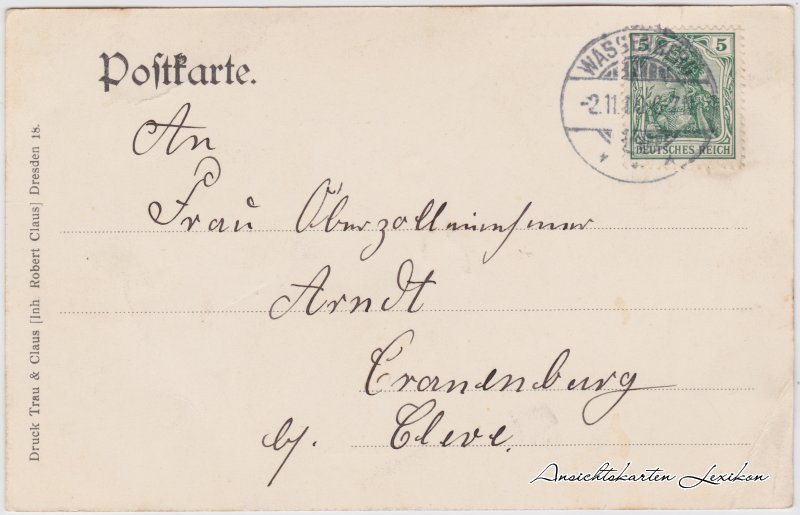 Postkarte.
WASSENBERG
-2.11.
5 5
DEUTSCHES REICH
An
Frau Oberzolleinnehmer
Arndt
Cranenburg
b/. Cleve.
Druck Trau & Claus [Inh Robert Claus] Dresden 18.
Ansichtskarten Lexikon